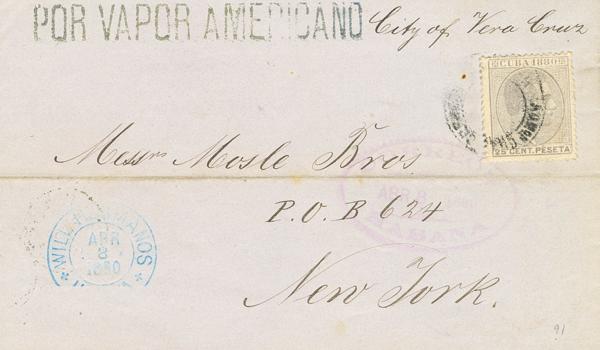 POR VAPOR AMERICANO City of Vera Cruz
CUBA 1880
25 CENT. PESETA
Messrs Mosle Bros.
P.O. B 624
New York.
HERMANOS
ABR
8
1880
HABANA
91